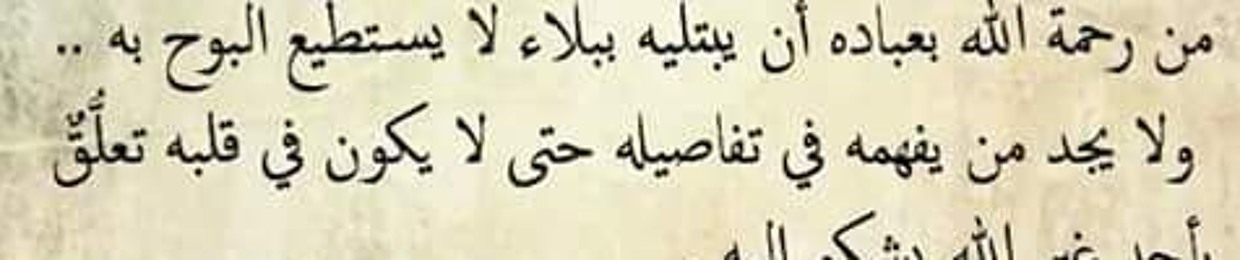 من رحمة الله بعباده أن يبتليه ببلاء لا يستطيع البوح به ..
ولا يجد من يفهمه في تفاصيله حتى لا يكون في قلبه تعلُّقٌ
بأحد غير الله يشكو إليه